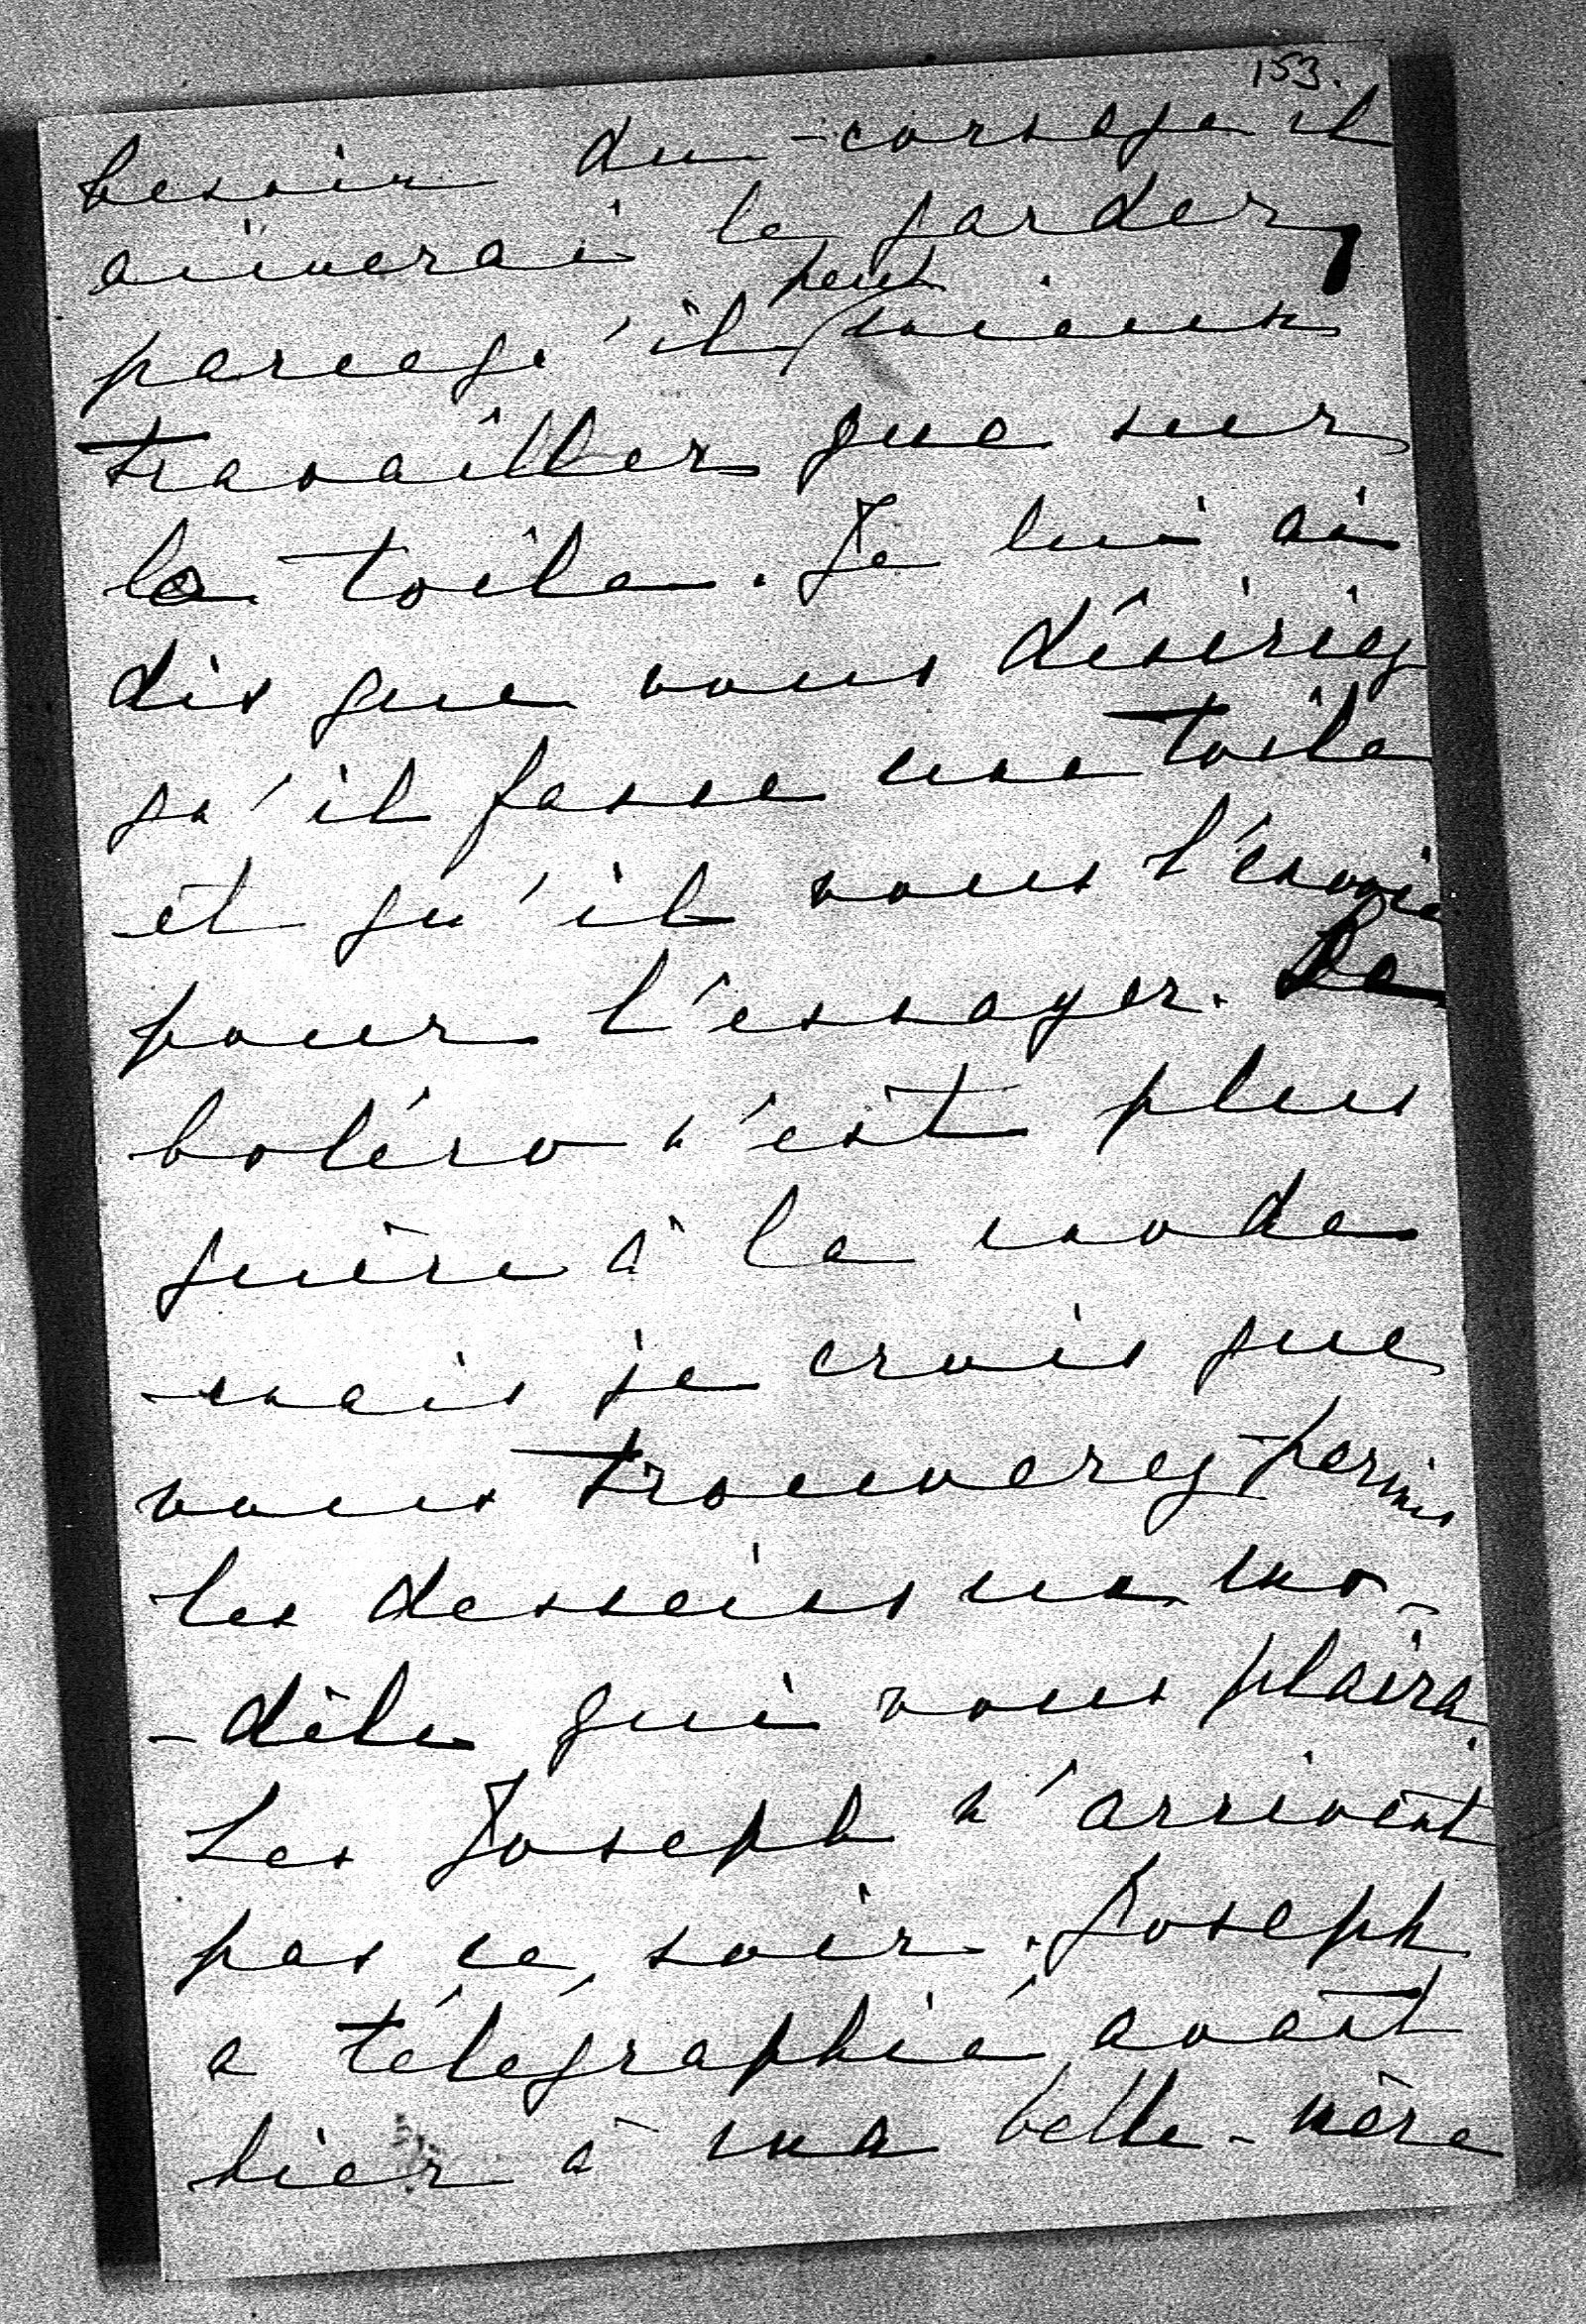 153.
besoin du corsage il
aimerai le garder,
parcequ'il peut mieux
travailler que sur
la toile. Je lui ai
dis que vous désiriez
qu'il fasse une toile
et qu'il vous l'envoie
pour l'essayer. Le
boléro n'est plus
guère à la mode
mais je crois que
vous trouverez parmis
les desseins un mo-
-dèle qui vous plaira.
Les Joseph n'arrivent
pas ce soir. Joseph
a télégraphié avant
hier à ma belle-mère